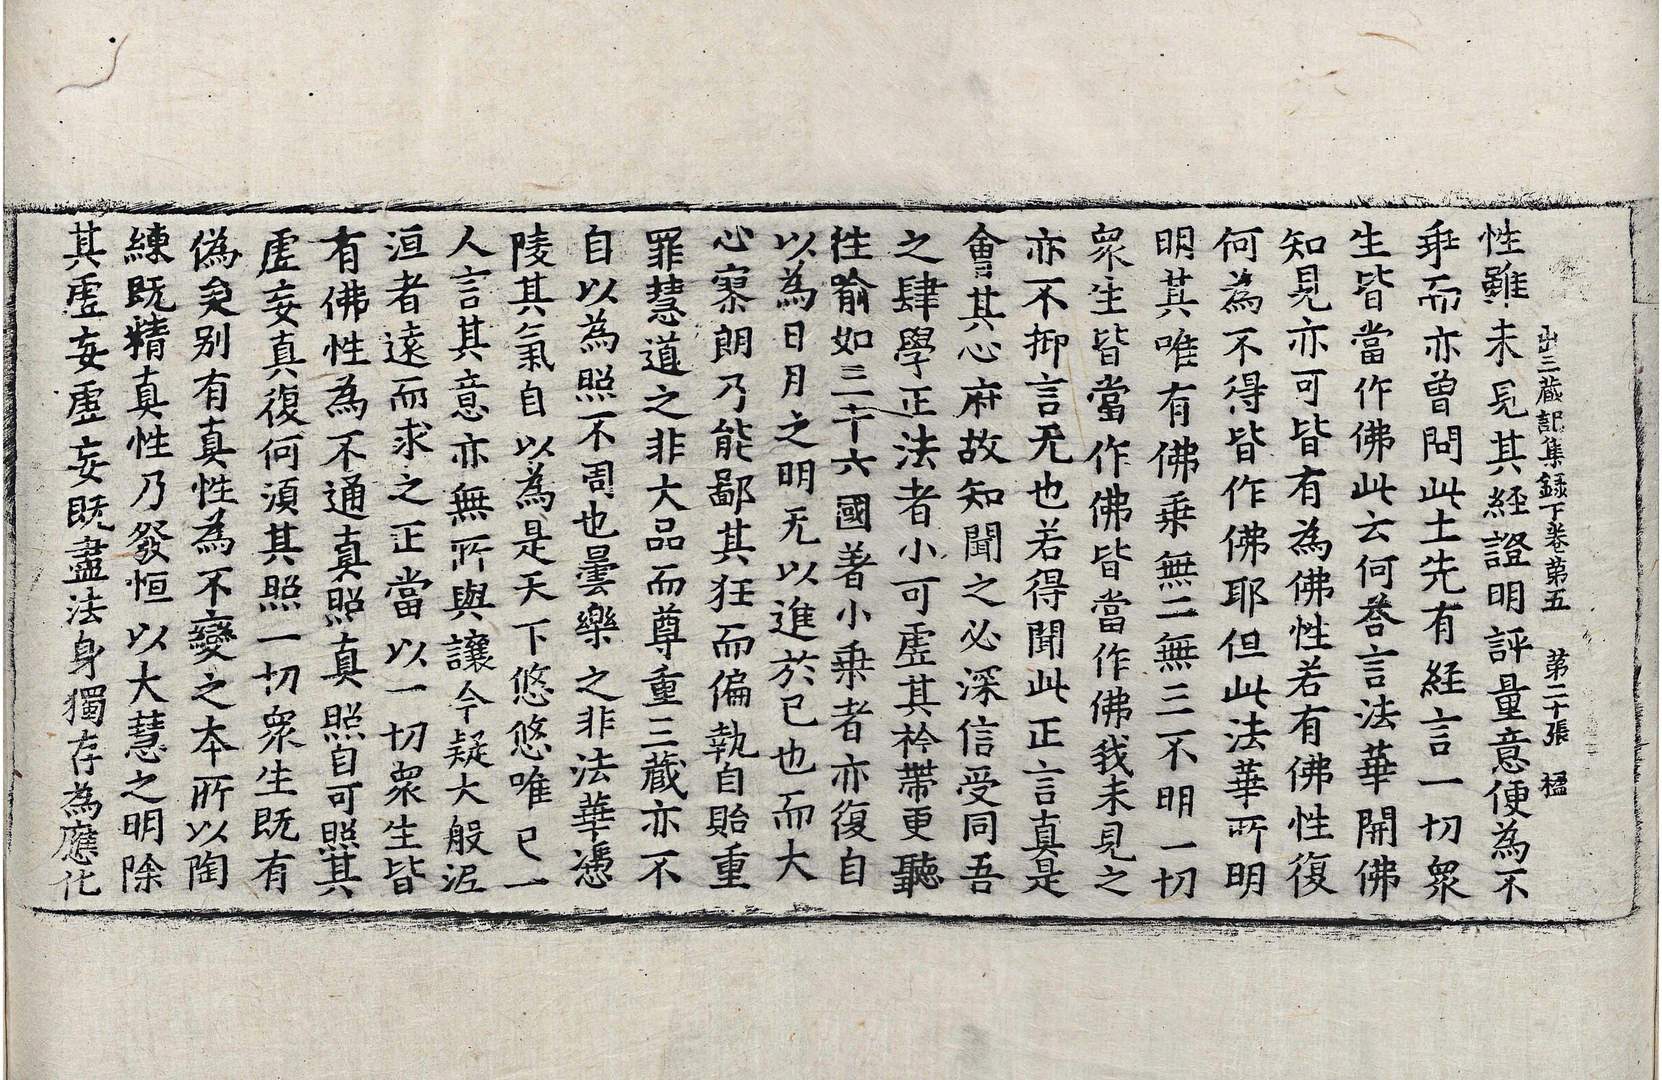 出三藏記集錄下卷第五　第二十張　楹
性雖未見其經證明評量意便為不
乖而亦曾問此土先有經言一切眾
生皆當作佛此云何荅言法華開佛
知見亦可皆有為佛性若有佛性復
何為不得皆作佛耶但此法華所明
明其唯有佛乘無二無三不明一切
眾生皆當作佛皆當作佛我未見之
亦不抑言无也若得聞此正言真是
會其心府故知聞之必深信受同吾
之肆學正法者小可虛其衿帶更聽
往喻如三十六國著小乘者亦復自
以為日月之明无以進於已也而大
心寥朗乃能鄙其狂而偏執自貽重
罪慧道之非大品而尊重三藏亦不
自以為照不周也曇樂之非法華憑
陵其氣自以為是天下悠悠唯已一
人言其意亦無所與讓今疑大般泥
洹者遠而求之正當以一切眾生皆
有佛性為不通真照真照自可照其
虛妄真復何須其照一切眾生既有
偽矣別有真性為不變之本所以陶
練既精真性乃發恒以大慧之明除
其虛妄虛妄既盡法身獨存為應化